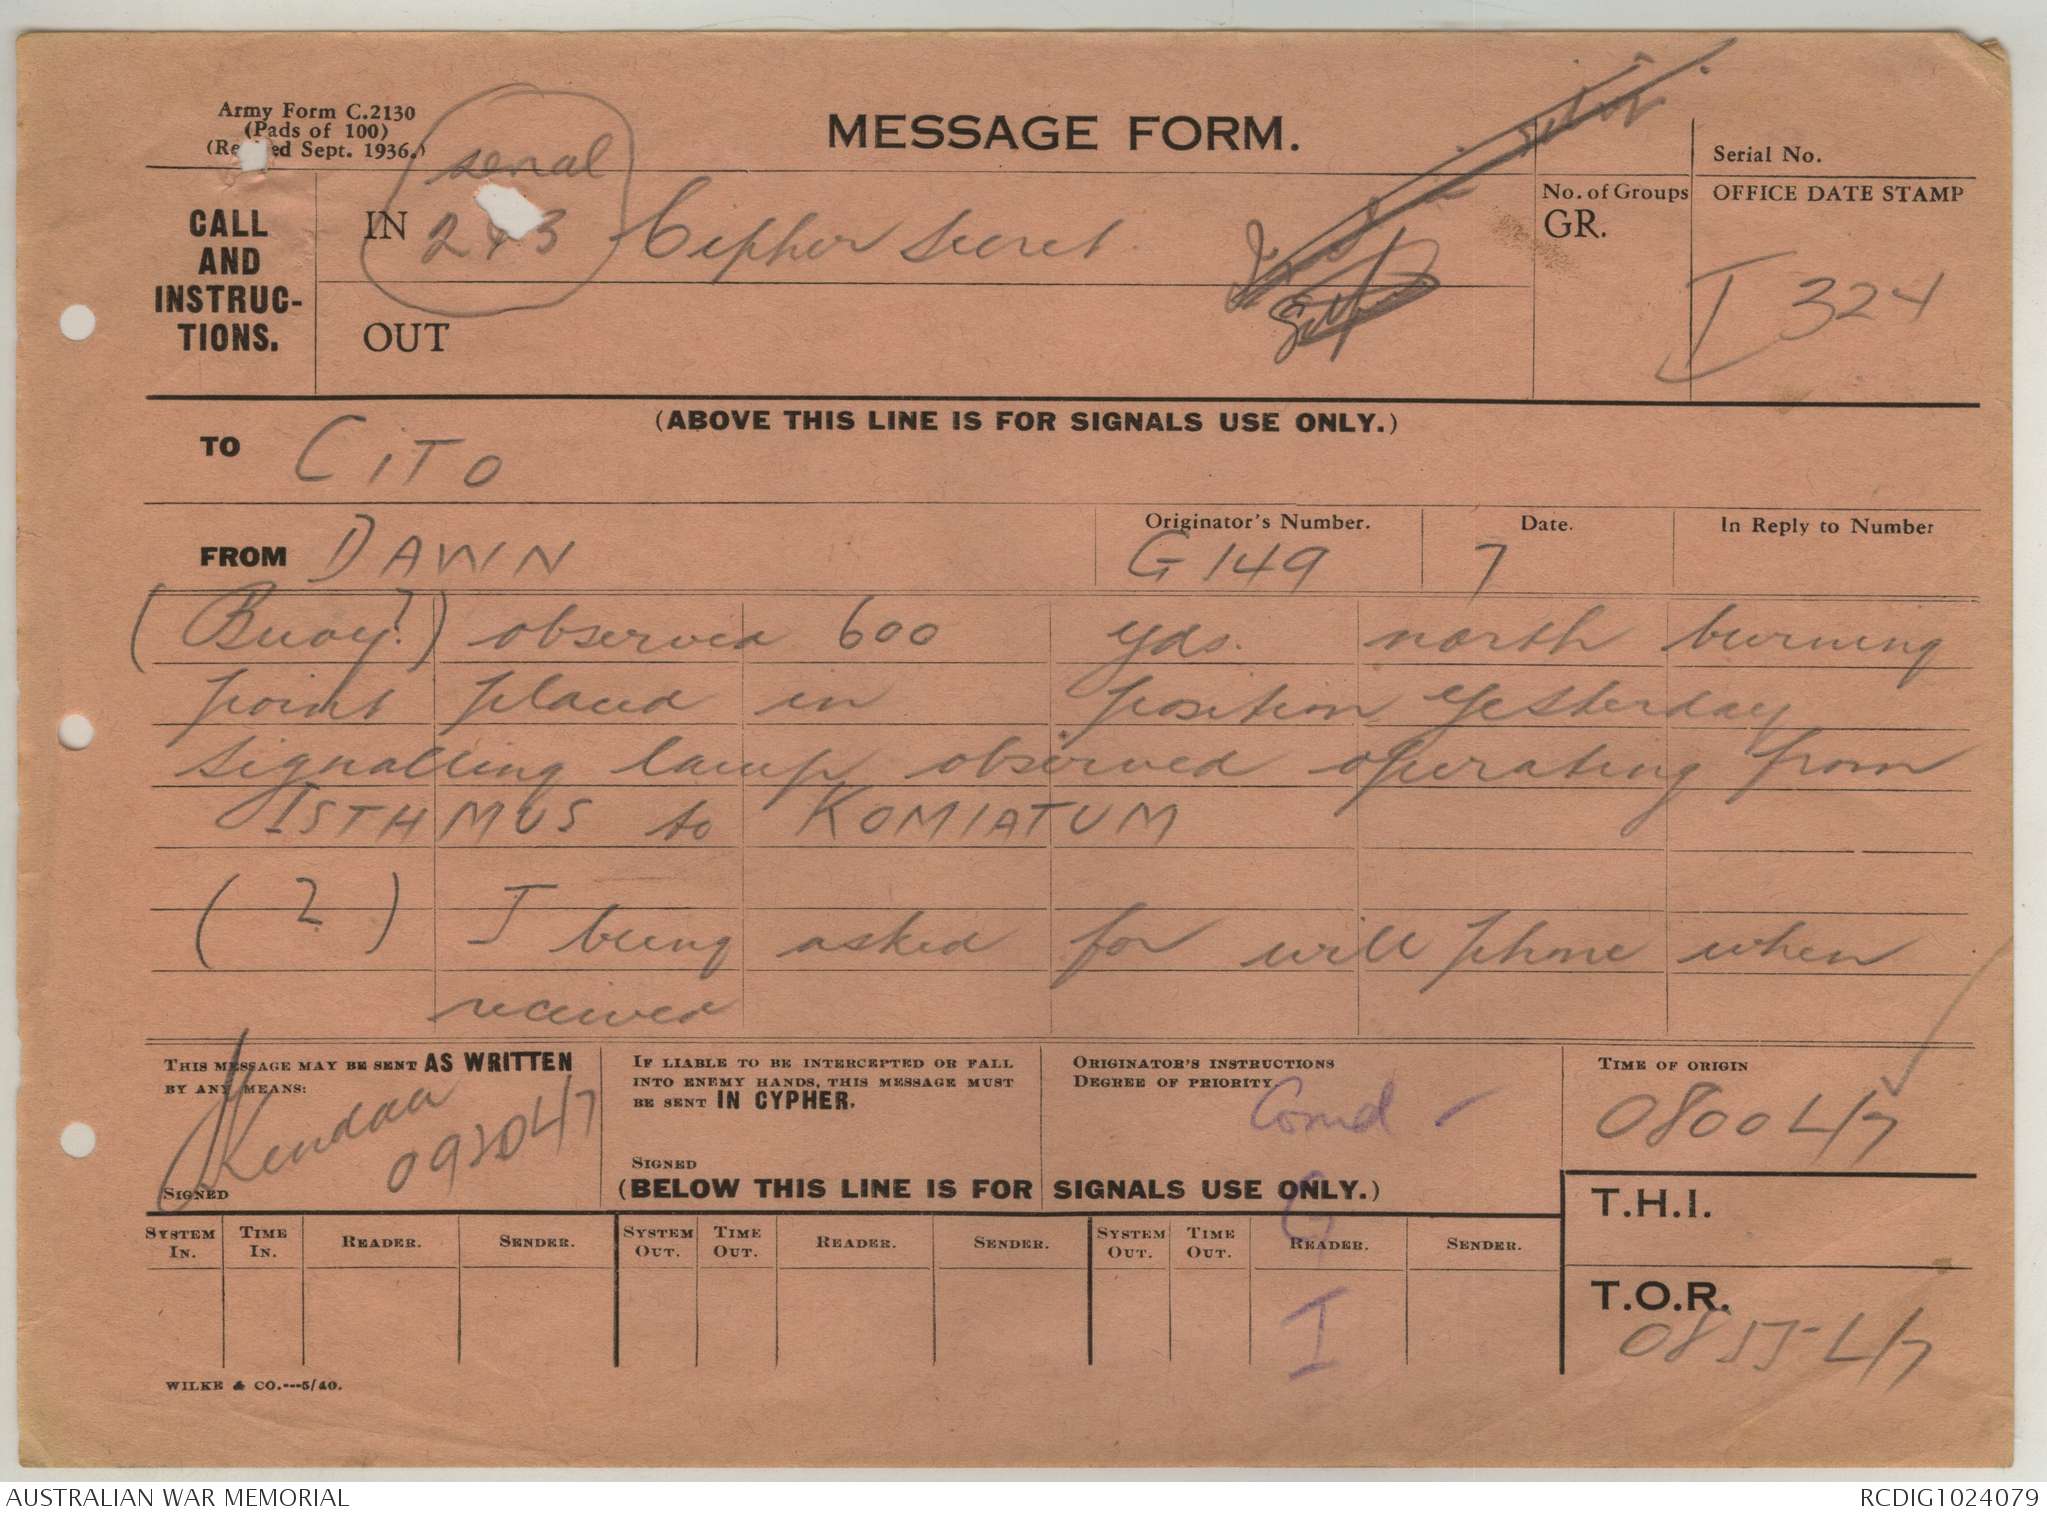 Army Form C.2130
(Pads of 100)
(Re ed Sept. 1936.)
MESSAGE FORM.
serial
Serial No.
CALL AND INSTRUC-TIONS.
IN 2 3 Cipher Secret
No. of Groups
GR.
OFFICE DATE STAMP
I 324
OUT
(ABOVE THIS LINE IS FOR SIGNALS USE ONLY.)
TO CITO
FROM DAWN
Originator's Number.
G 149
Date.
7
In Reply to Number
(Buoy?) observed 600 yds. north burning
point placed in position yesterday
signalling lamp observed operating from
ISTHMUS to KOMIATUM
(2) I being asked for will phone when
received
THIS MESSAGE MAY BE SENT AS WRITTEN
BY ANY MEANS:
SIGNED
IF LIABLE TO BE INTERCEPTED OR FALL
INTO ENEMY HANDS, THIS MESSAGE MUST
BE SENT IN CYPHER.
SIGNED
ORIGINATOR'S INSTRUCTIONS
DEGREE OF PRIORITY
Comd -
G
I
TIME OF ORIGIN
0800 L/7
(BELOW THIS LINE IS FOR SIGNALS USE ONLY.)
T.H.I.
T.O.R.
0855 L/7
SYSTEM IN.
TIME IN.
READER.
SENDER.
SYSTEM OUT.
TIME OUT.
READER.
SENDER.
SYSTEM OUT.
TIME OUT.
READER.
SENDER.
WILKE & CO.---5/40.
AUSTRALIAN WAR MEMORIAL
RCDIG1024079